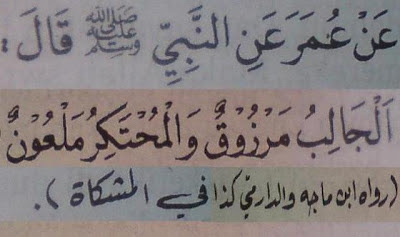 عَنْ عُمَرَ عَنِ النَّبِيِّ ﷺ قَالَ :
اَلْجَالِبُ مَرْزُوْقٌ وَالْمُحْتَكِرُ مَلْعُوْنٌ
(رواه ابن ماجه والدارمي كذا في المشكاة).